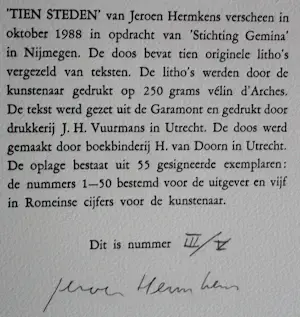 'TIEN STEDEN' van Jeroen Hermkens verscheen in
oktober 1988 in opdracht van 'Stichting Gemina'
in Nijmegen. De doos bevat tien originele litho's
vergezeld van teksten. De litho's werden door de
kunstenaar gedrukt op 250 grams vélin d'Arches.
De tekst werd gezet uit de Garamont en gedrukt door
drukkerij J. H. Vuurmans in Utrecht. De doos werd
gemaakt door boekbinderij H. van Doorn in Utrecht.
De oplage bestaat uit 55 gesigneerde exemplaren:
de nummers 1—50 bestemd voor de uitgever en vijf
in Romeinse cijfers voor de kunstenaar.
Dit is nummer III/V
Jeroen Hermkens